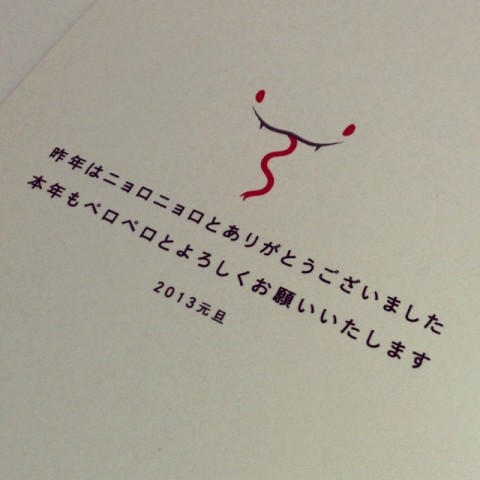 昨年はニョロニョロとありがとうございました
本年もペロペロとよろしくお願いいたします
2013元旦